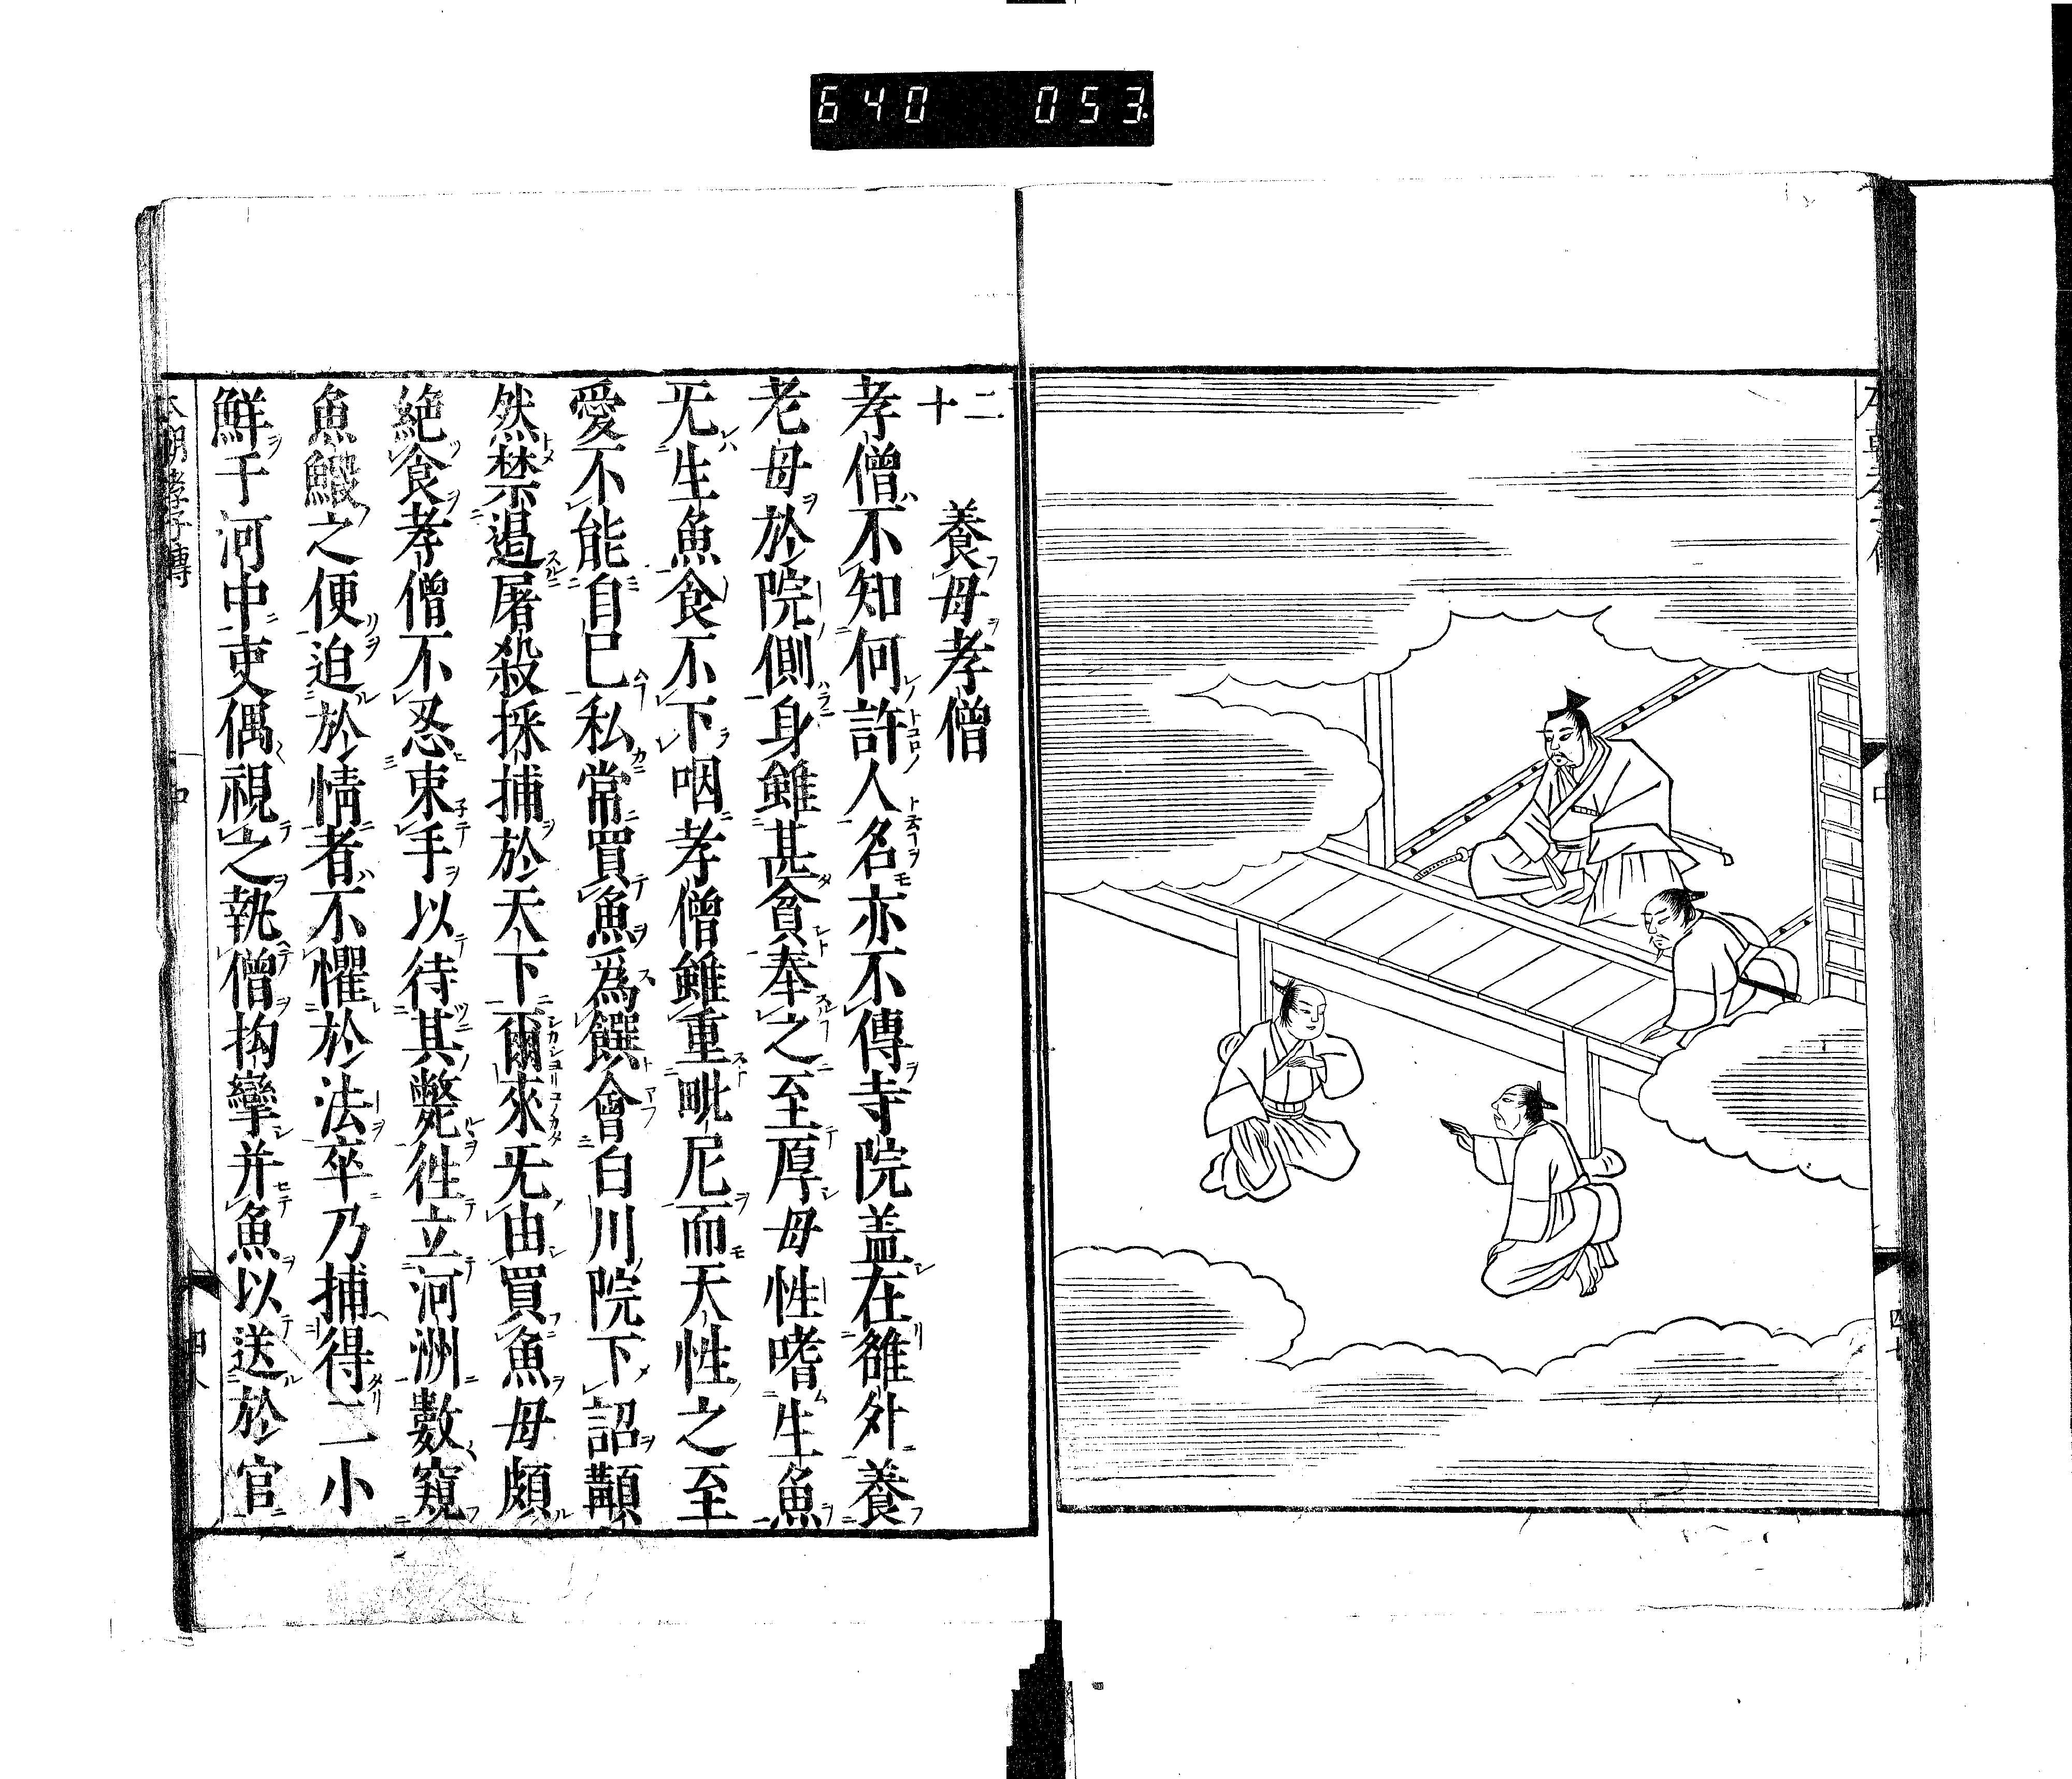 640 053
二十
養母孝僧
孝僧不知何許人名亦不傳寺院盖在雒外養
老母於院側身雖甚貧奉之至厚母性嗜生魚
无生魚食不下咽孝僧雖重毗尼而天性之至
愛不能自已私常買魚爲饌會白川院下詔顓
然禁遏屠殺採捕於天下爾來无由買魚母頗
絶食孝僧不忍束手以待其斃徃立河洲數窺
魚鰕之便迫於情者不懼於法卒乃捕得二小
鮮于河中吏偶視之執僧拘攣并魚以送於官
本朝孝子傳
中
四八